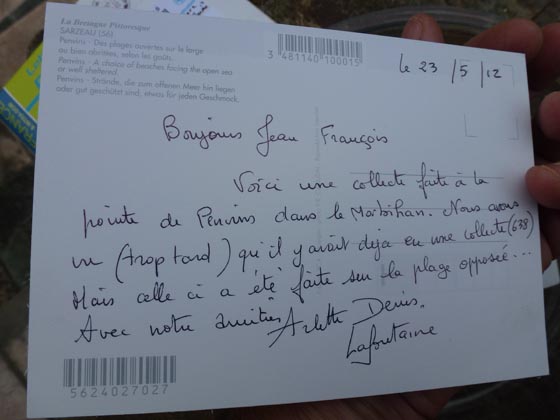 La Bretagne Pittoresque
SARZEAU (56)
Penvins - Des plages ouvertes sur le large
ou bien abritées, selon les goûts.
Penvins - A choice of beaches facing the open sea
or well sheltered.
Penvins - Strände, die zum offenen Meer hin liegen
oder gut geschützt sind, etwas für jeden Geschmack.
3 481140 100015
le 23 /5 /12
Bonjour Jean François
Voici une collecte faite à la
pointe de Penvins dans le Morbihan. Nous avons
vu (trop tard) qu'il y avait déjà eu une collecte (638)
Mais celle ci a été faite sur la plage opposée...
Avec notre amitiés Arlette Denis.
Lafontaine
5624027027